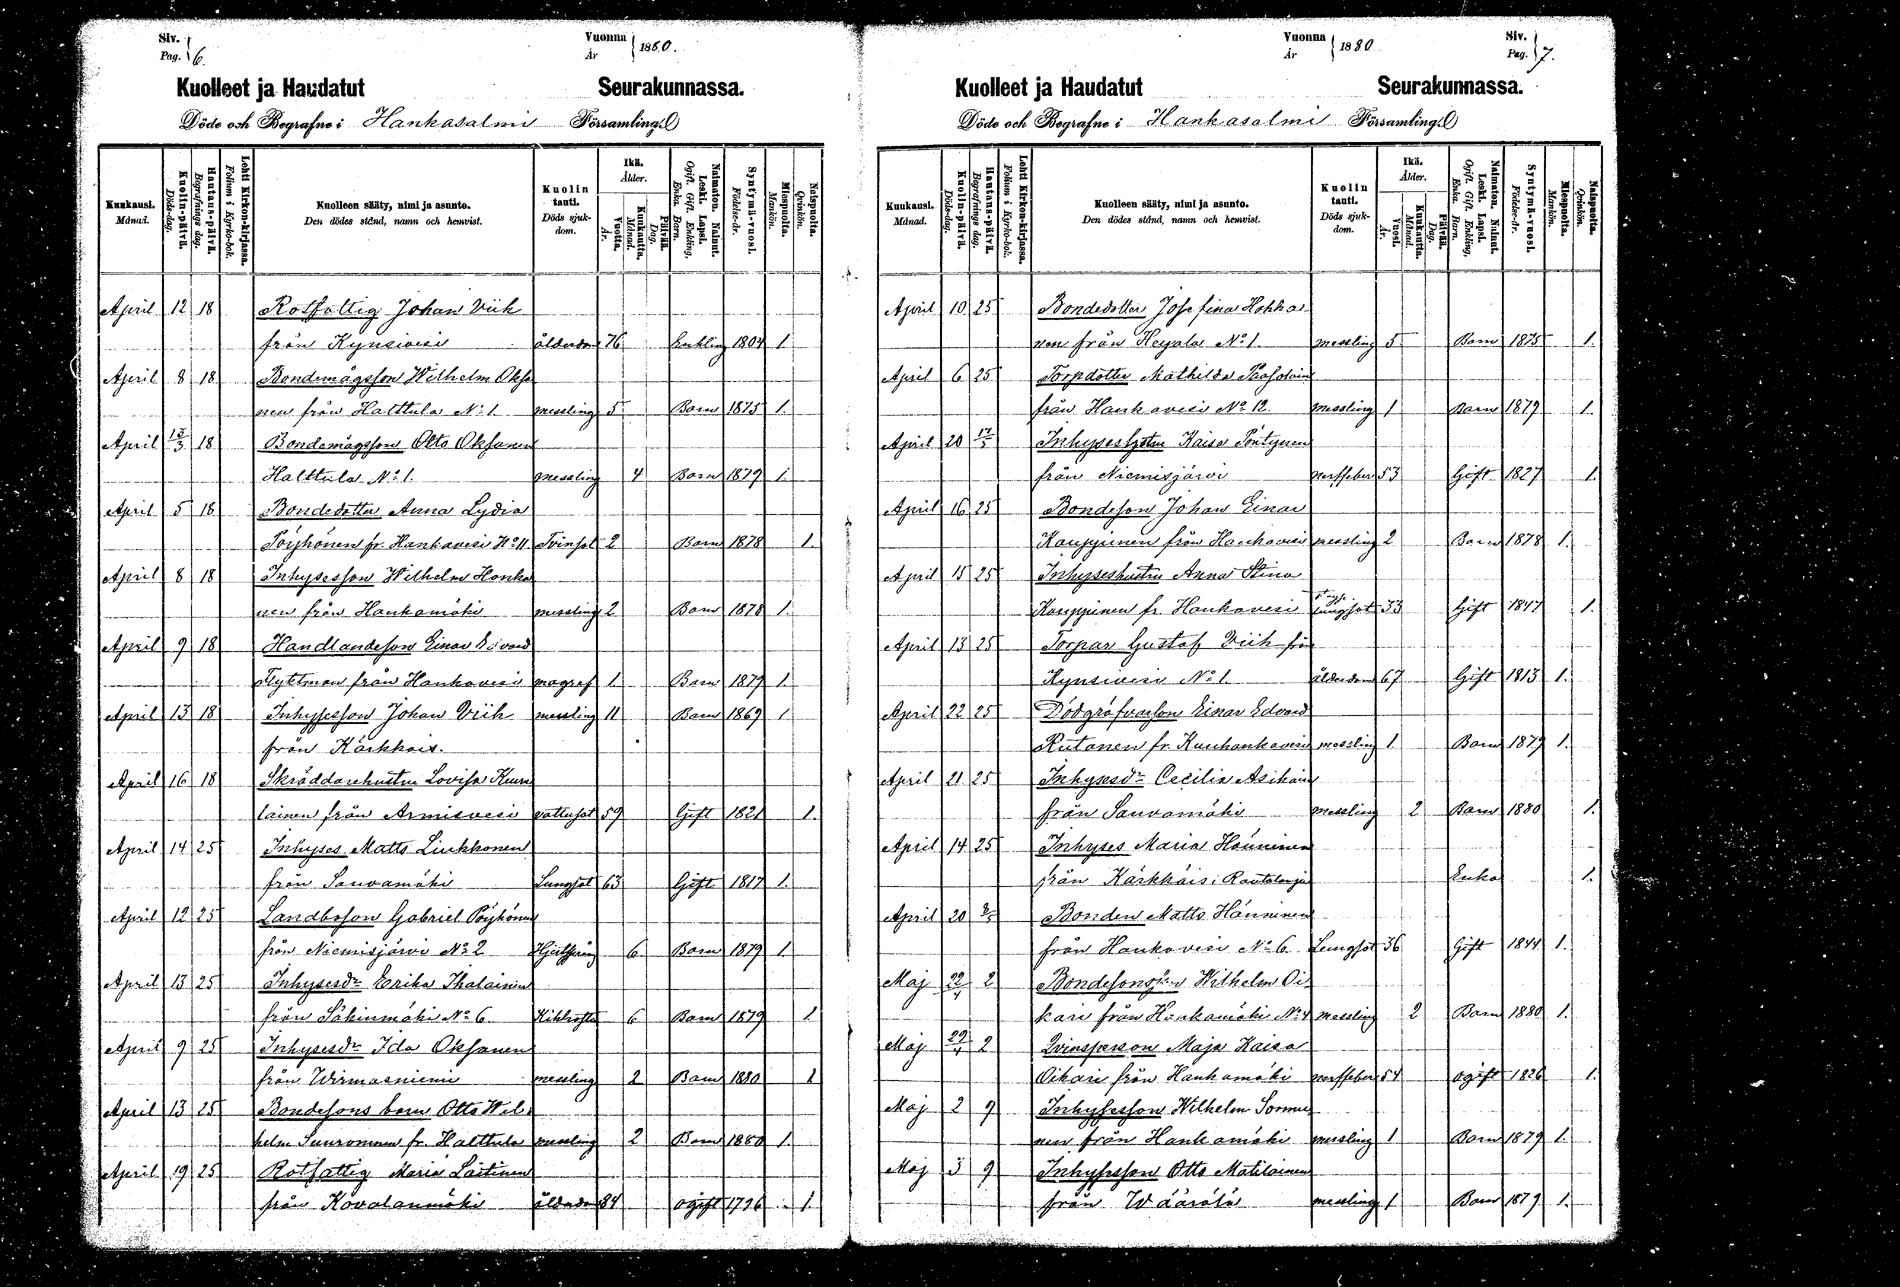 Siv.
Pag. 6.
Vuonna
År 1880.
Kuolleet ja Haudatut Seurakunnassa.
Döde och Begrafne i Hankasalmi Församling.
Kuukausi. Månad.
Kuolin-päivä. Döds-dag.
Hautaus-päivä. Begrafnings dag.
Lehti Kirkon-kirjassa. Folium i Kyrko-bok.
Kuolleen sääty, nimi ja asunto. Den dödes stånd, namn och hemvist.
Kuolin tauti. Döds sjuk-dom.
Ikä. Ålder.
Vuotta. År.
Kuukautta. Månad.
Päivää. Dag.
Naimaton. Nainut. Leski. Lapsi. Ogift. Gift. Enkling. Enka. Barn.
Syntymä-vuosi. Födelse-år.
Miespuolta. Mankön.
Naispuolta. Qvinkön.
April 12 18 Rotfattig Johan Viik
från Kynsivesi ålderdom 76 Enkling 1804 1.
April 8 18 Bondemågsson Wilhelm Oksa
nen från Halttula No 1 messling 5 Barn 1875 1.
April 13/3 18 Bondemågsson Otto Oksanen
Halttula No 1. messling 4 Barn 1879 1.
April 5 18 Bondedotter Anna Lydia
Pöyhönen fr. Hankavesi No 11 Tvinsot 2 Barn 1878 1.
April 8 18 Inhysesson Wilhelm Honka
nen från Hankamäki messling 2 Barn 1878 1.
April 9 18 Handlandeson Einar Edvard
Flyktman från Hankavesi magref 1 Barn 1879 1
April 13 18 Inhysesson Johan Viik messling 11 Barn 1869 1
från Kärkkäis.
April 16 18 Skräddarehustru Lovisa Kinna
lainen från Armisvesi vattusot 59 Gift 1821 1.
April 14 25 Inhyses Matts Liukkonen
från Sauvamäki Lungsot 63 Gift 1817 1.
April 12 25 Landboson Gabriel Pöyhönen
från Niemisjärvi No 2 6 Barn 1879 1.
April 13 25 Inhysesdr Erika Ihalainen
från Säkinmäki No 6 Kikhosta 6 Barn 1879 1
April 9 25 Inhysesdr Ida Oksanen
från Wirmasniemi messling 2 Barn 1880 1
April 13 25 Bondesons barn Otto Wil
helm Suuronen fr. Halttula messling 2 Barn 1880 1.
April 19 25 Rotfattig Maria Laitinen
från Kovalanmäki ålderdom 84 ogift 1796 1.
Vuonna
År 1880
Siv.
Pag. 7.
Kuolleet ja Haudatut Seurakunnassa.
Döde och Begrafne i Hankasalmi Församling.
Kuukausi. Månad.
Kuolin-päivä. Döds-dag.
Hautaus-päivä. Begrafnings dag.
Lehti Kirkon-kirjassa. Folium i Kyrko-bok.
Kuolleen sääty, nimi ja asunto. Den dödes stånd, namn och hemvist.
Kuolin tauti. Döds sjuk-dom.
Ikä. Ålder.
Vuosi. År.
Kuukautta. Månad.
Päivää. Dag.
Naimaton. Nainut. Leski. Lapsi. Ogift. Gift. Enkling. Enka. Barn.
Syntymä-vuosi. Födelse-år.
Miespuolta. Mankön.
Naispuolta. Qvinkön.
April 10 25 Bondedotter Josefina Hokka
nen från Heyala No 1. messling 5 Barn 1875 1.
April 6 25 Torpdotter Mathilda Paasolain
från Hankavesi No 12. messling 1 Barn 1879 1.
April 20 17/5 Inhyseshustru Kaisa Pöntynen
från Niemisjärvi nerffeber 53 Gift 1827 1.
April 16 25 Bondeson Johan Einar
Kauppinen från Hankavesi messling 2 Barn 1878 1.
April 15 25 Inhyseshustru Anna Stina
Kauppinen fr. Hankavesi lungsot 33 Gift 1847 1.
April 13 25 Torpar Gustaf Viik från
Kynsivesi No 1 ålderdom 67 Gift 1813 1.
April 22 25 Dödgräfvarson Einar Edvard
Rutanen fr. Kuuhankavesi messling 1 Barn 1879 1.
April 21 25 Inhysesdr Cecilia Asikain
från Sauvamäki messling 2 Barn 1880 1.
April 14 25 Inhyses Maria Hänninen
från Kärkkäis i Rautalampi Enka 1.
April 20 2/5 Bonden Matts Hänninen
från Hankavesi No 6 Lungsot 36 Gift 1844 1.
Maj 22/4 2 Bondesons Wilhelm Oi
kari från Hankamäki No 4 messling 2 Barn 1880 1.
Maj 29/4 2 Qvinsperson Maja Kaisa
Oikari från Hankamäki nerffeber 54 ogift 1826 1.
Maj 2 9 Inhysesson Wilhelm Sormu
nen från Hankamäki messling 1 Barn 1879 1.
Maj 3 9 Inhysesson Otto Matilainen
från Wäärälä messling 1 Barn 1879 1.